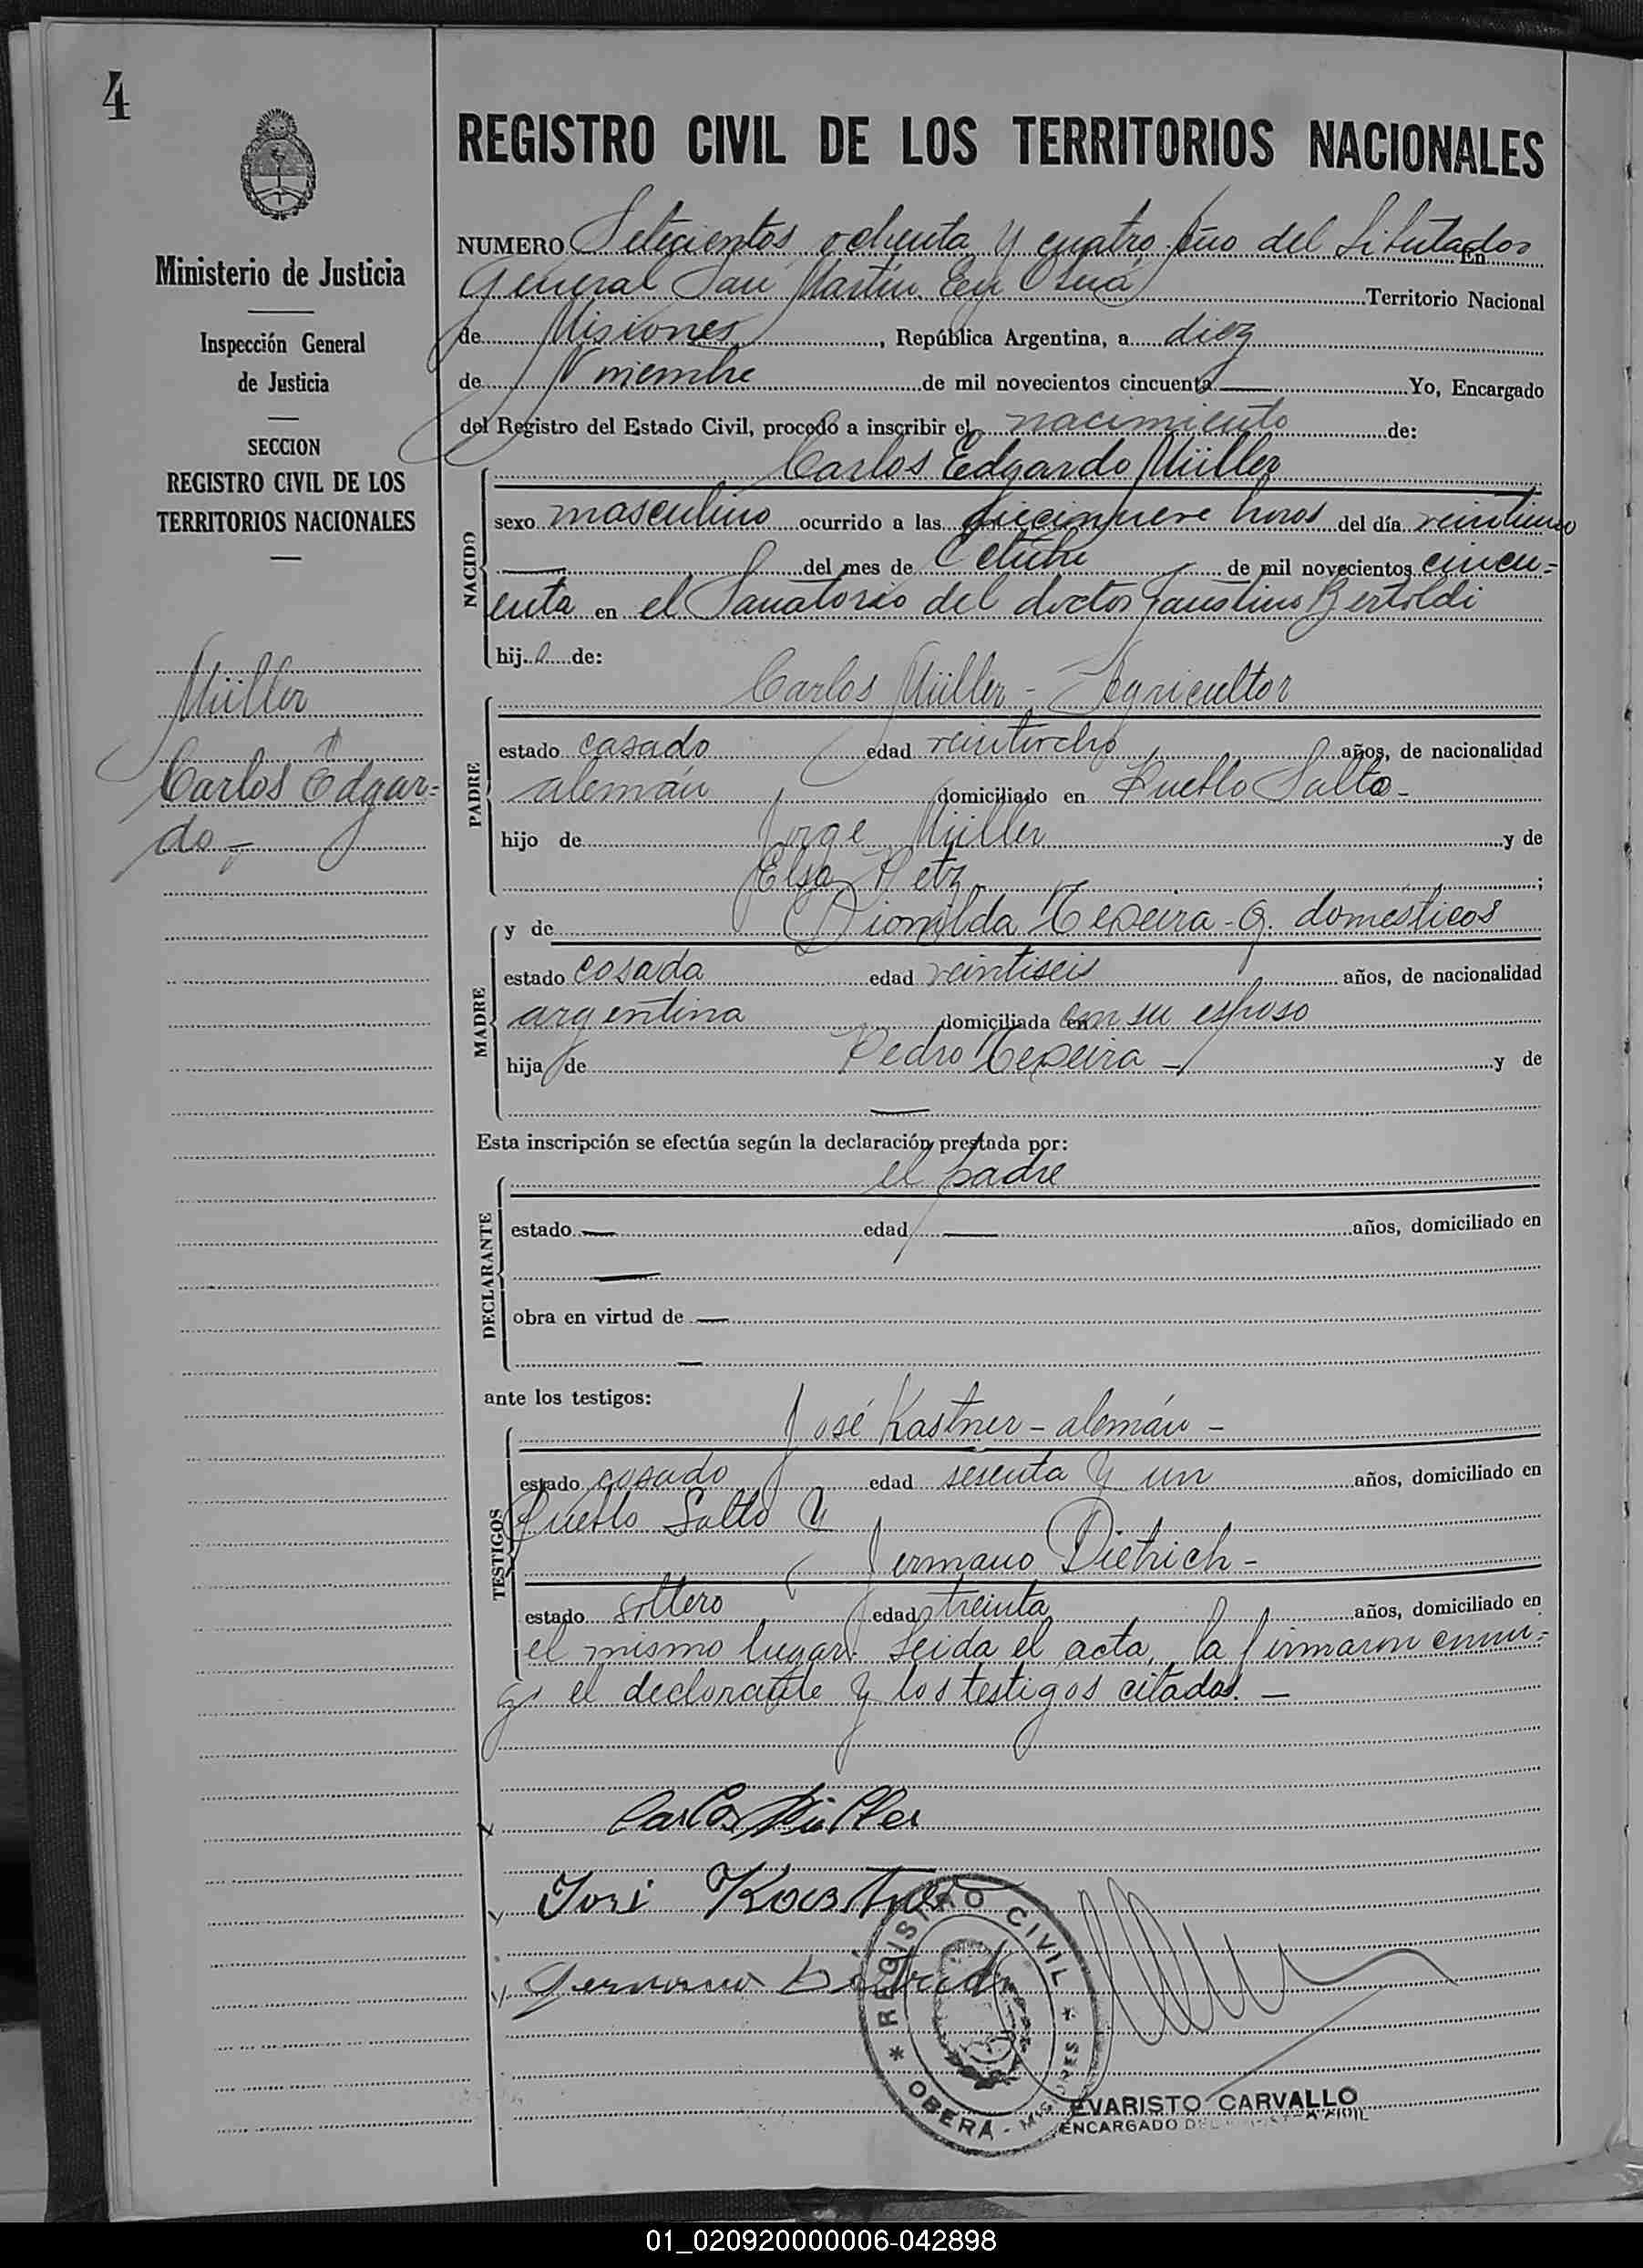 4
REGISTRO CIVIL DE LOS TERRITORIOS NACIONALES
Ministerio de Justicia
Inspección General
de Justicia
SECCION
REGISTRO CIVIL DE LOS
TERRITORIOS NACIONALES
Müller
Carlos Edgar=
do.-
NUMERO Setecientos ochenta y cuatro. Año del Libertador En
General San Martín. En Oberá Territorio Nacional
de Misiones, República Argentina, a diez
de Noviembre de mil novecientos cincuenta — Yo, Encargado
del Registro del Estado Civil, procedo a inscribir el nacimiento de:
Carlos Edgardo Müller
NACIDO
sexo masculino ocurrido a las diecinueve horas del día veintiuno
— del mes de Octubre de mil novecientos cincu=
enta en el Sanatorio del doctor Faustino Bertoldi
hij o de:
Carlos Müller - Agricultor
PADRE
estado casado edad veintiocho años, de nacionalidad
alemán domiciliado en Pueblo Salto-
hijo de Jorge Müller y de
Elsa Petz ;
y de Dionilda Texeira - Q. domésticos
MADRE
estado casada edad veintiseis años, de nacionalidad
argentina domiciliada en con su esposo
hija de Pedro Texeira - y de
—
Esta inscripción se efectúa según la declaración prestada por:
el padre
DECLARANTE
estado — edad — años, domiciliado en
—
obra en virtud de —
—
ante los testigos:
José Kastner - alemán -
TESTIGOS
estado casado edad sesenta y un años, domiciliado en
Pueblo Salto y
Germano Dietrich -
estado soltero edad treinta años, domiciliado en
el mismo lugar. Leida el acta, la firmaron conmi=
go el declarante y los testigos citados. -
Carlos Müller
José Kastner
Germano Dietrich
* REGISTRO CIVIL * OBERA - MISIONES
EVARISTO CARVALLO
ENCARGADO DEL
01_020920000006-042898